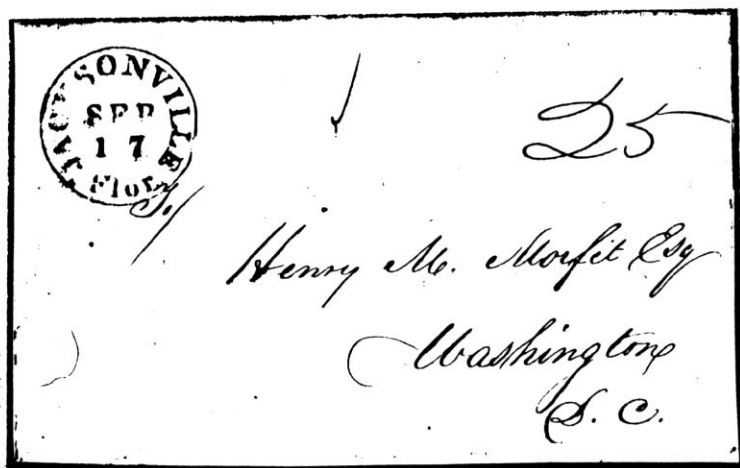 JACKSONVILLE
SEP
17
Flor.
25
Henry M. Morfit Esq
Washington
D. C.